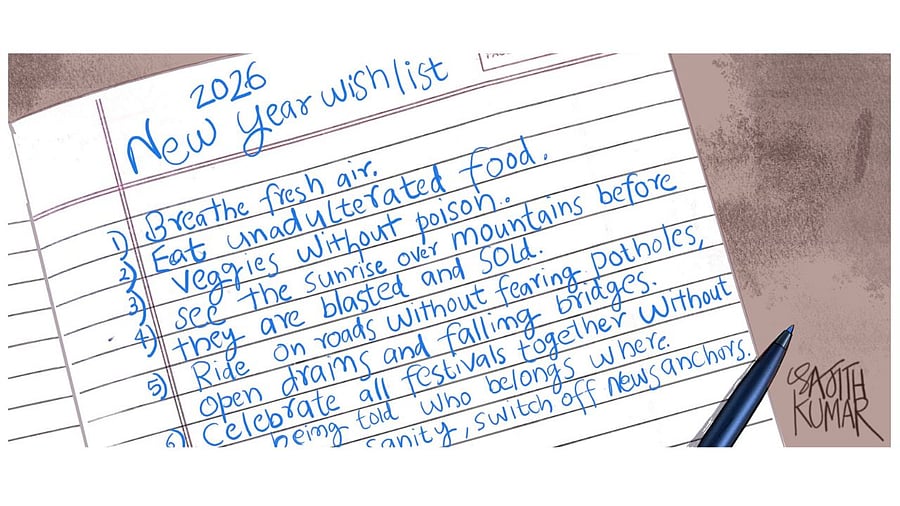 2026
New year wishlist
1) Breathe fresh air.
2) Eat unadulterated food.
3) veggies without poison.
4) see the sunrise over mountains before
they are blasted and sold.
5) Ride on roads without fearing potholes,
open drains and falling bridges.
Celebrate all festivals together without
being told who belongs where.
sanity, switch off news anchors.
SAJITH
KUMAR